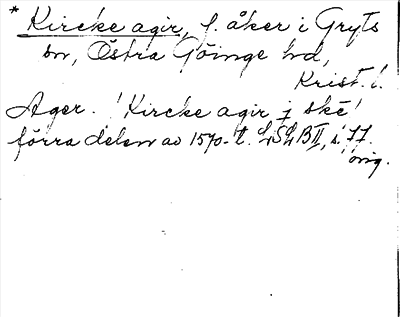 * Kircke agir, f. åker i Gryts
sn, Östra Göinge hd,
Krist. l.
Ager. ! Kircke agir j skē!
förra delen av 1570-t. LSL BII, s. 77.
orig.